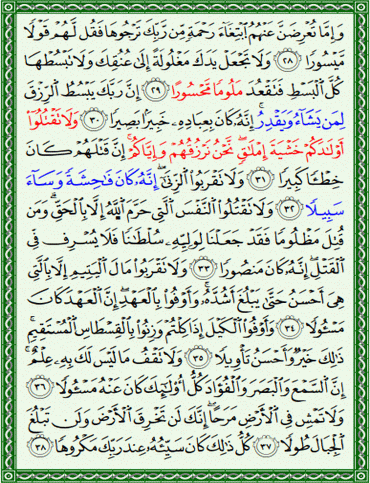 وَإِمَّا تُعْرِضَنَّ عَنْهُمُ ٱبْتِغَآءَ رَحْمَةٍ مِّن رَّبِّكَ تَرْجُوهَا فَقُل لَّهُمْ قَوْلًا
مَّيْسُورًا ٢٨ وَلَا تَجْعَلْ يَدَكَ مَغْلُولَةً إِلَىٰ عُنُقِكَ وَلَا تَبْسُطْهَا
كُلَّ ٱلْبَسْطِ فَتَقْعُدَ مَلُومًا مَّحْسُورًا ٢٩ إِنَّ رَبَّكَ يَبْسُطُ ٱلرِّزْقَ
لِمَن يَشَآءُ وَيَقْدِرُ ۚ إِنَّهُۥ كَانَ بِعِبَادِهِۦ خَبِيرًۢا بَصِيرًا ٣٠ وَلَا تَقْتُلُوٓا۟
أَوْلَـٰدَكُمْ خَشْيَةَ إِمْلَـٰقٍ ۖ نَّحْنُ نَرْزُقُهُمْ وَإِيَّاكُمْ ۚ إِنَّ قَتْلَهُمْ كَانَ
خِطْـًٔا كَبِيرًا ٣١ وَلَا تَقْرَبُوا۟ ٱلزِّنَىٰٓ ۖ إِنَّهُۥ كَانَ فَـٰحِشَةً وَسَآءَ
سَبِيلًا ٣٢ وَلَا تَقْتُلُوا۟ ٱلنَّفْسَ ٱلَّتِى حَرَّمَ ٱللَّهُ إِلَّا بِٱلْحَقِّ ۗ وَمَن
قُتِلَ مَظْلُومًا فَقَدْ جَعَلْنَا لِوَلِيِّهِۦ سُلْطَـٰنًا فَلَا يُسْرِف فِّى
ٱلْقَتْلِ ۖ إِنَّهُۥ كَانَ مَنصُورًا ٣٣ وَلَا تَقْرَبُوا۟ مَالَ ٱلْيَتِيمِ إِلَّا بِٱلَّتِى
هِىَ أَحْسَنُ حَتَّىٰ يَبْلُغَ أَشُدَّهُۥ ۚ وَأَوْفُوا۟ بِٱلْعَهْدِ ۖ إِنَّ ٱلْعَهْدَ كَانَ
مَسْـُٔولًا ٣٤ وَأَوْفُوا۟ ٱلْكَيْلَ إِذَا كِلْتُمْ وَزِنُوا۟ بِٱلْقِسْطَاسِ ٱلْمُسْتَقِيمِ ۚ
ذَٰلِكَ خَيْرٌ وَأَحْسَنُ تَأْوِيلًا ٣٥ وَلَا تَقْفُ مَا لَيْسَ لَكَ بِهِۦ عِلْمٌ ۚ
إِنَّ ٱلسَّمْعَ وَٱلْبَصَرَ وَٱلْفُؤَادَ كُلُّ أُو۟لَـٰٓئِكَ كَانَ عَنْهُ مَسْـُٔولًا ٣٦
وَلَا تَمْشِ فِى ٱلْأَرْضِ مَرَحًا ۖ إِنَّكَ لَن تَخْرِقَ ٱلْأَرْضَ وَلَن تَبْلُغَ
ٱلْجِبَالَ طُولًا ٣٧ كُلُّ ذَٰلِكَ كَانَ سَيِّئُهُۥ عِندَ رَبِّكَ مَكْرُوهًا ٣٨